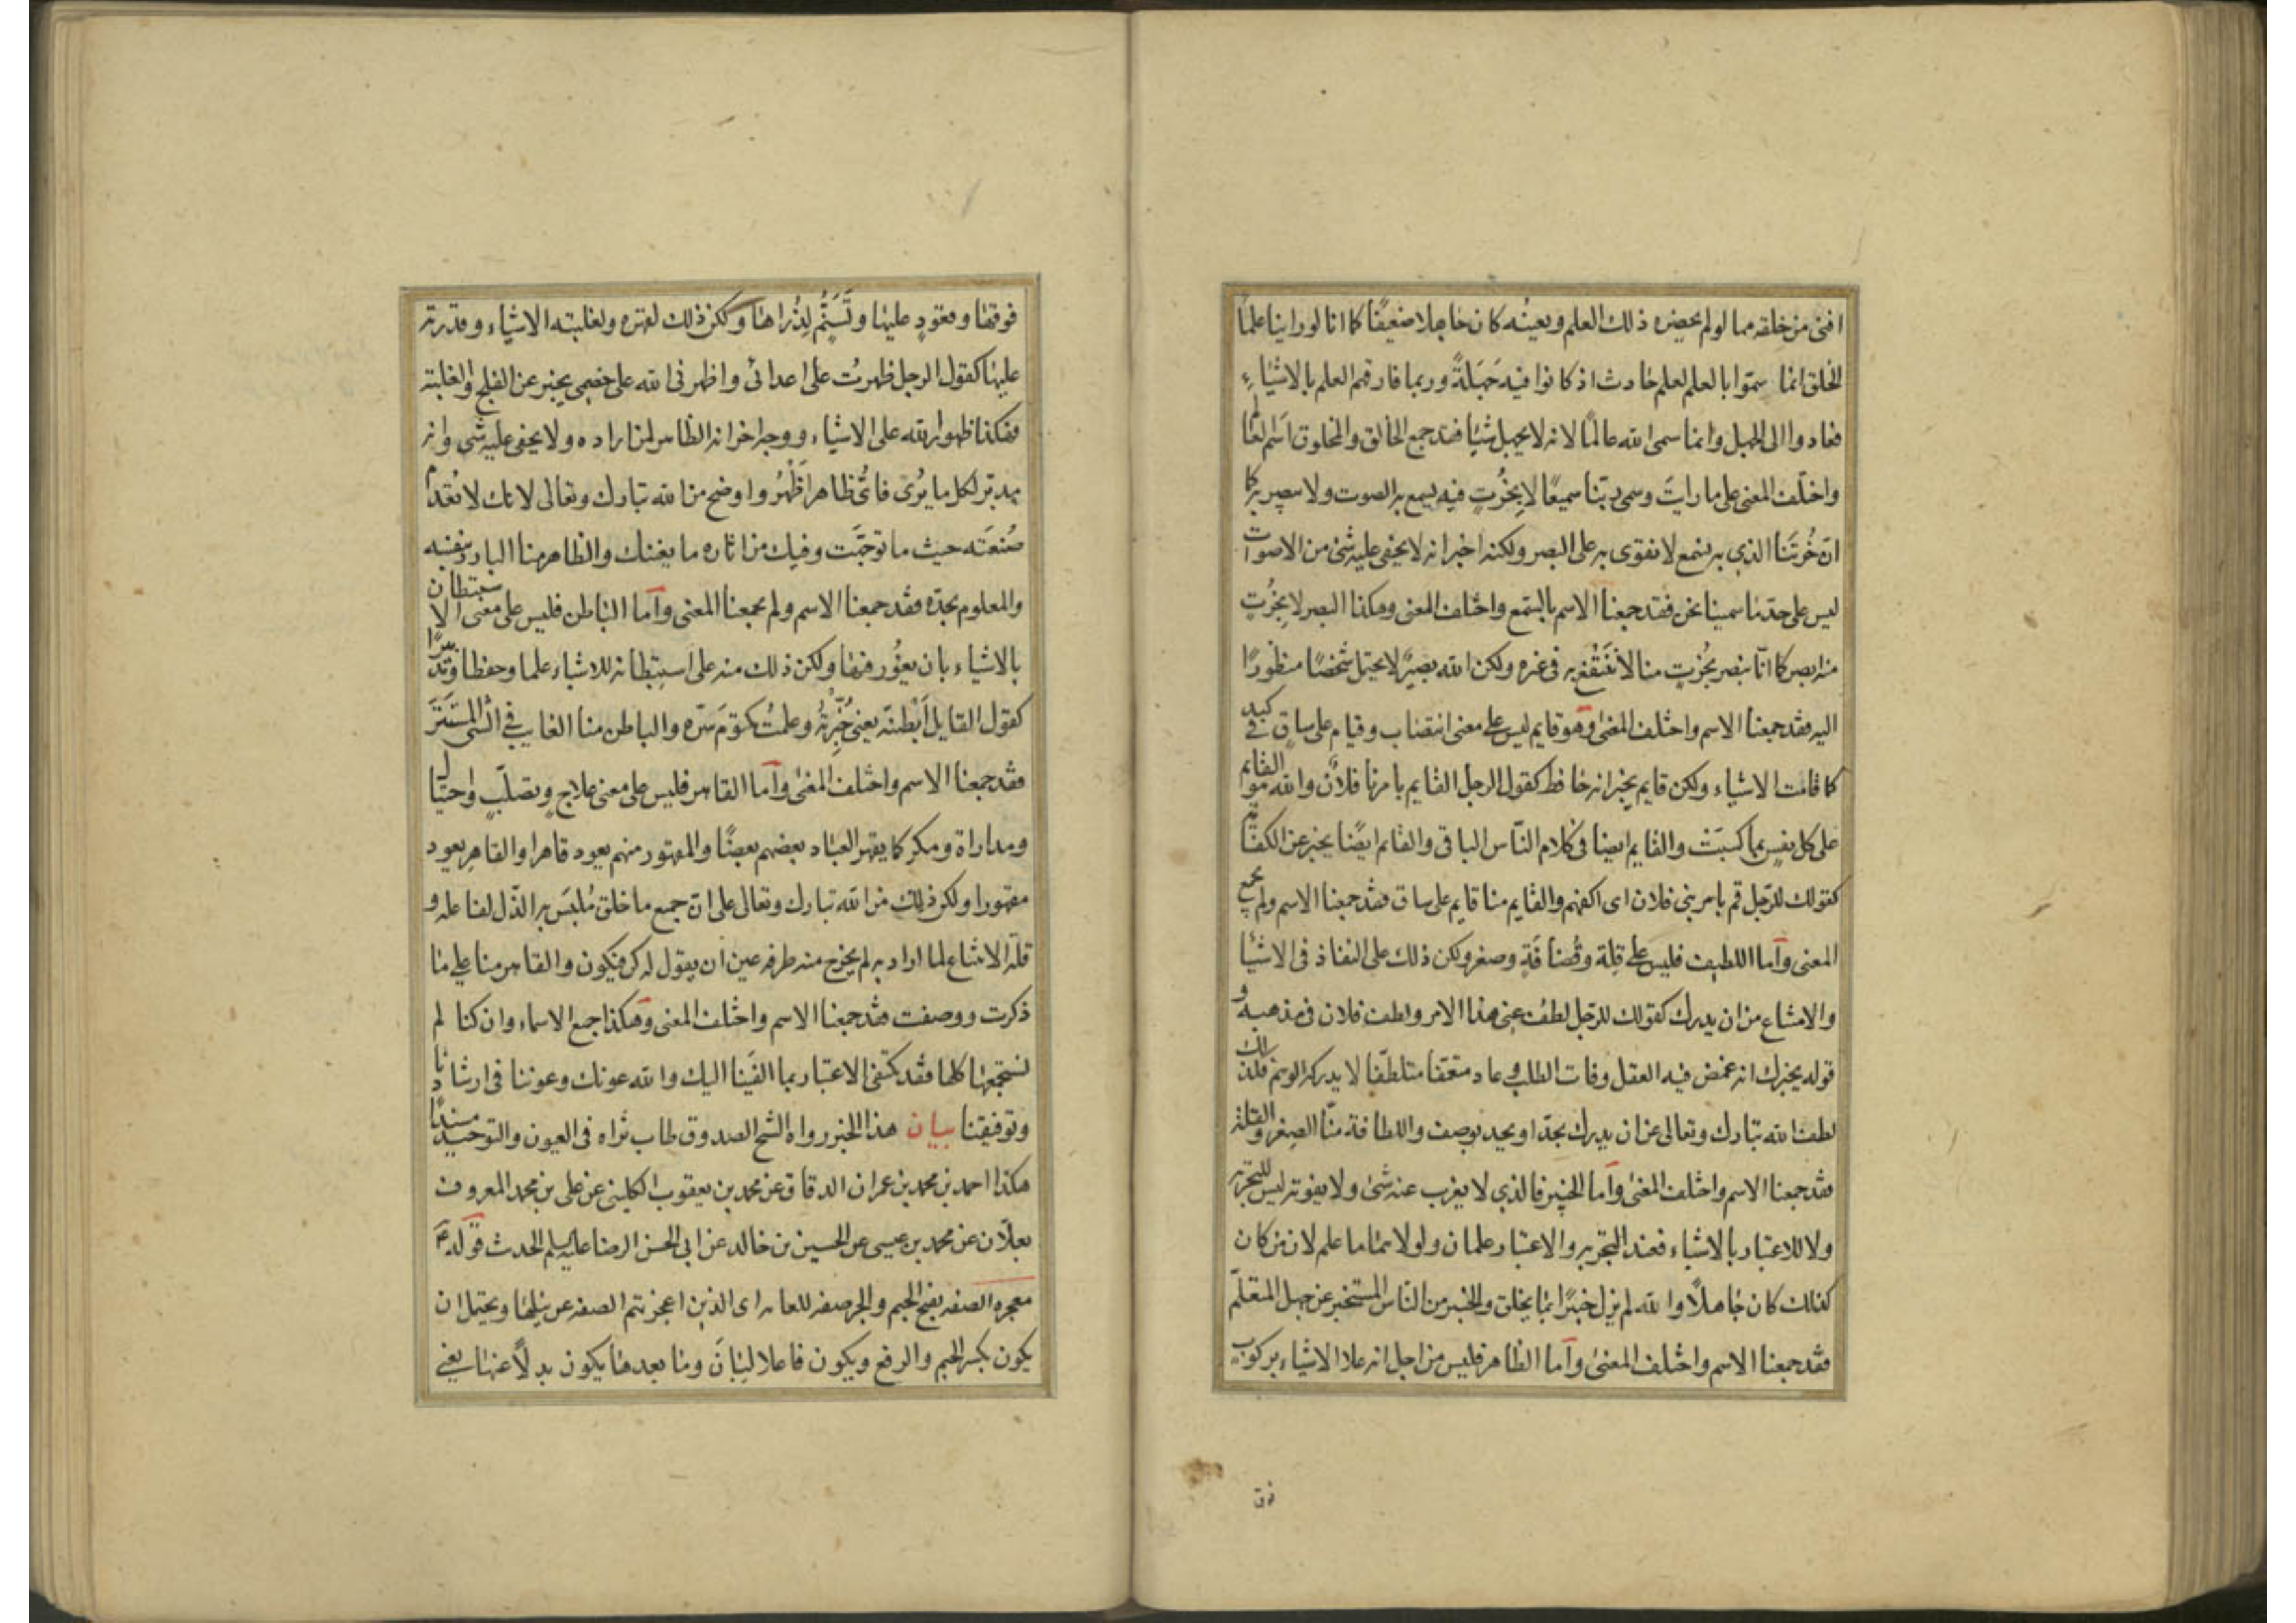 افنى من خلقه مما لو لم يحضره ذلك العلم ويعينه كان جاهلا ضعيفا كما انا لو راينا علماء
الخلق انما سموا بالعلم لعلم حادث اذ كانوا فيه جهلة وربما فارقهم العلم بالاشياء
فعادوا الى الجهل وانما سمى الله عالما لانه لا يجهل شيئا فقد جمع الخالق والمخلوق اسم العالم
واختلف المعنى على ما رايت وسمى ربنا سميعا لا بخرت فيه يسمع به الصوت ولا يبصر به كما
ان خرتنا الذي به نسمع لا نقوى به على البصر ولكنه اخبر انه لا يخفى عليه شئ من الاصوات
ليس على حد ما سمينا نحن فقد جمعنا الاسم بالسمع واختلف المعنى وهكذا البصر لا بخرت
منه ابصر كما انا نبصر بخرت منا لا ننتفع به في غيره ولكن الله بصير لا يحتمل شخصا منظورا
اليه فقد جمعنا الاسم واختلف المعنى وهو قايم ليس على معنى انتصاب وقيام على ساق في كبد
كما قامت الاشياء ولكن قايم يخبر انه حافظ كقول الرجل القايم بامرنا فلان والله هو القايم
على كل نفس بما كسبت والقايم ايضا في كلام الناس الباقى والقائم ايضا يخبر عن الكفاية
كقولك للرجل قم بامر بني فلان اى اكفهم والقايم منا قايم على ساق فقد جمعنا الاسم ولم يجمع
المعنى وأما اللطيف فليس على قلة وقضافة وصغر ولكن ذلك على النفاذ فى الاشيا
والامتناع من ان يدرك كقولك للرجل لطف عنى هذا الامر ولطف فلان فى مذهبه و
قوله يخبرك انه غمض فيه العقل وفات الطلب و عاد متعمقا متلطفا لا يدركه الوهم فكذلك
لطف الله تبارك وتعالى عن ان يدرك بحد او يحد بوصف واللطافة منا الصغر والقلة
فقد جمعنا الاسم واختلف المعنى وأما الخبير فالذي لا يغرب عنه شئ ولا يفوته ليس للتجربة
ولا للاعتبار بالاشياء فعند التجربه والاعتبار علمان ولولا هما ما علم لان من كان
كذلك كان جاهلا والله لم يزل خبيرا بما يخلق والخبير من الناس المستخبر عن جهل المتعلم
فقد جمعنا الاسم واختلف المعنى وأما الظاهر فليس من اجل انه علا الاشياء بركوب
فوق
فوقها وقعود عليها وتسنم لذراها ولكن ذلك لقهره ولغلبته الاشياء وقدرته
عليها كقول الرجل ظهرت على اعدائى واظهرنى الله على خصمى يخبر عن الفلج والغلبة
فهكذا ظهور الله على الاشياء ووجه اخر انه الظاهر لمن اراده ولا يخفى عليه شى وانه
مدبر لكل ما يرى فاى ظاهر اظهر واوضح من الله تبارك وتعالى لانك لا تعدم
صنعته حيث ما توجهت وفيك من اثاره ما يغنيك والظاهر منا البارز بنفسه
والمعلوم بحده فقد جمعنا الاسم ولم يجمعنا المعنى وأما الباطن فليس على معنى الاستبطان
بالاشياء بان يغور فيها ولكن ذلك منه على استبطانه للاشياء علما وحفظا وتدبيرا
كقول القايل أبطنته يعنى خبرته وعلمت مكتوم سره والباطن منا الغايب في الشى المستتر
فقد جمعنا الاسم واختلف المعنى وأما القاهر فليس على معنى علاج وتصلب واحتيال
ومداراة ومكر كما يقهر العباد بعضهم بعضا والمقهور منهم يعود قاهرا والقاهر يعود
مقهورا ولكن ذلك من الله تبارك وتعالى على ان جميع ما خلق ملبس به الذل لفاعله و
قلة الامتناع لما اراد به لم يخرج منه طرفه عين ان يقول له كن فيكون والقاهر منا على ما
ذكرت ووصفت فقد جمعنا الاسم واختلف المعنى وهكذا جميع الاسماء وان كنا لم
نستجمعها كلها فقد تكتفى الاعتبار بما القينا اليك والله عونك وعوننا فى ارشادنا
وتوفيقنا بيان هذا الخبر رواه الشيخ الصدوق طاب ثراه فى العيون والتوحيد مسندا
هكذا احمد بن محمد بن عمران الدقاق عن محمد بن يعقوب الكلينى عن على بن محمد المعروف
بعلان عن محمد بن عيسى عن الحسين بن خالد عن ابى الحسن الرضا عليه السلم الحديث قوله ع
معجزه الصفه بفتح الجيم والجر صفه للعامه اى الذين اعجزتهم الصفه عن نيلها ويحتمل ان
يكون بكسر الجيم والرفع ويكون فاعلا لبان وما بعدها يكون بدلا عنها يعنى